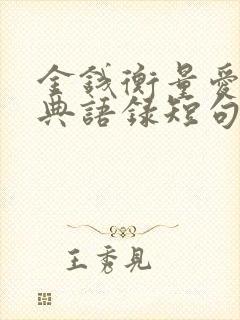 金錢衡量愛
典語錄短句
王秀見